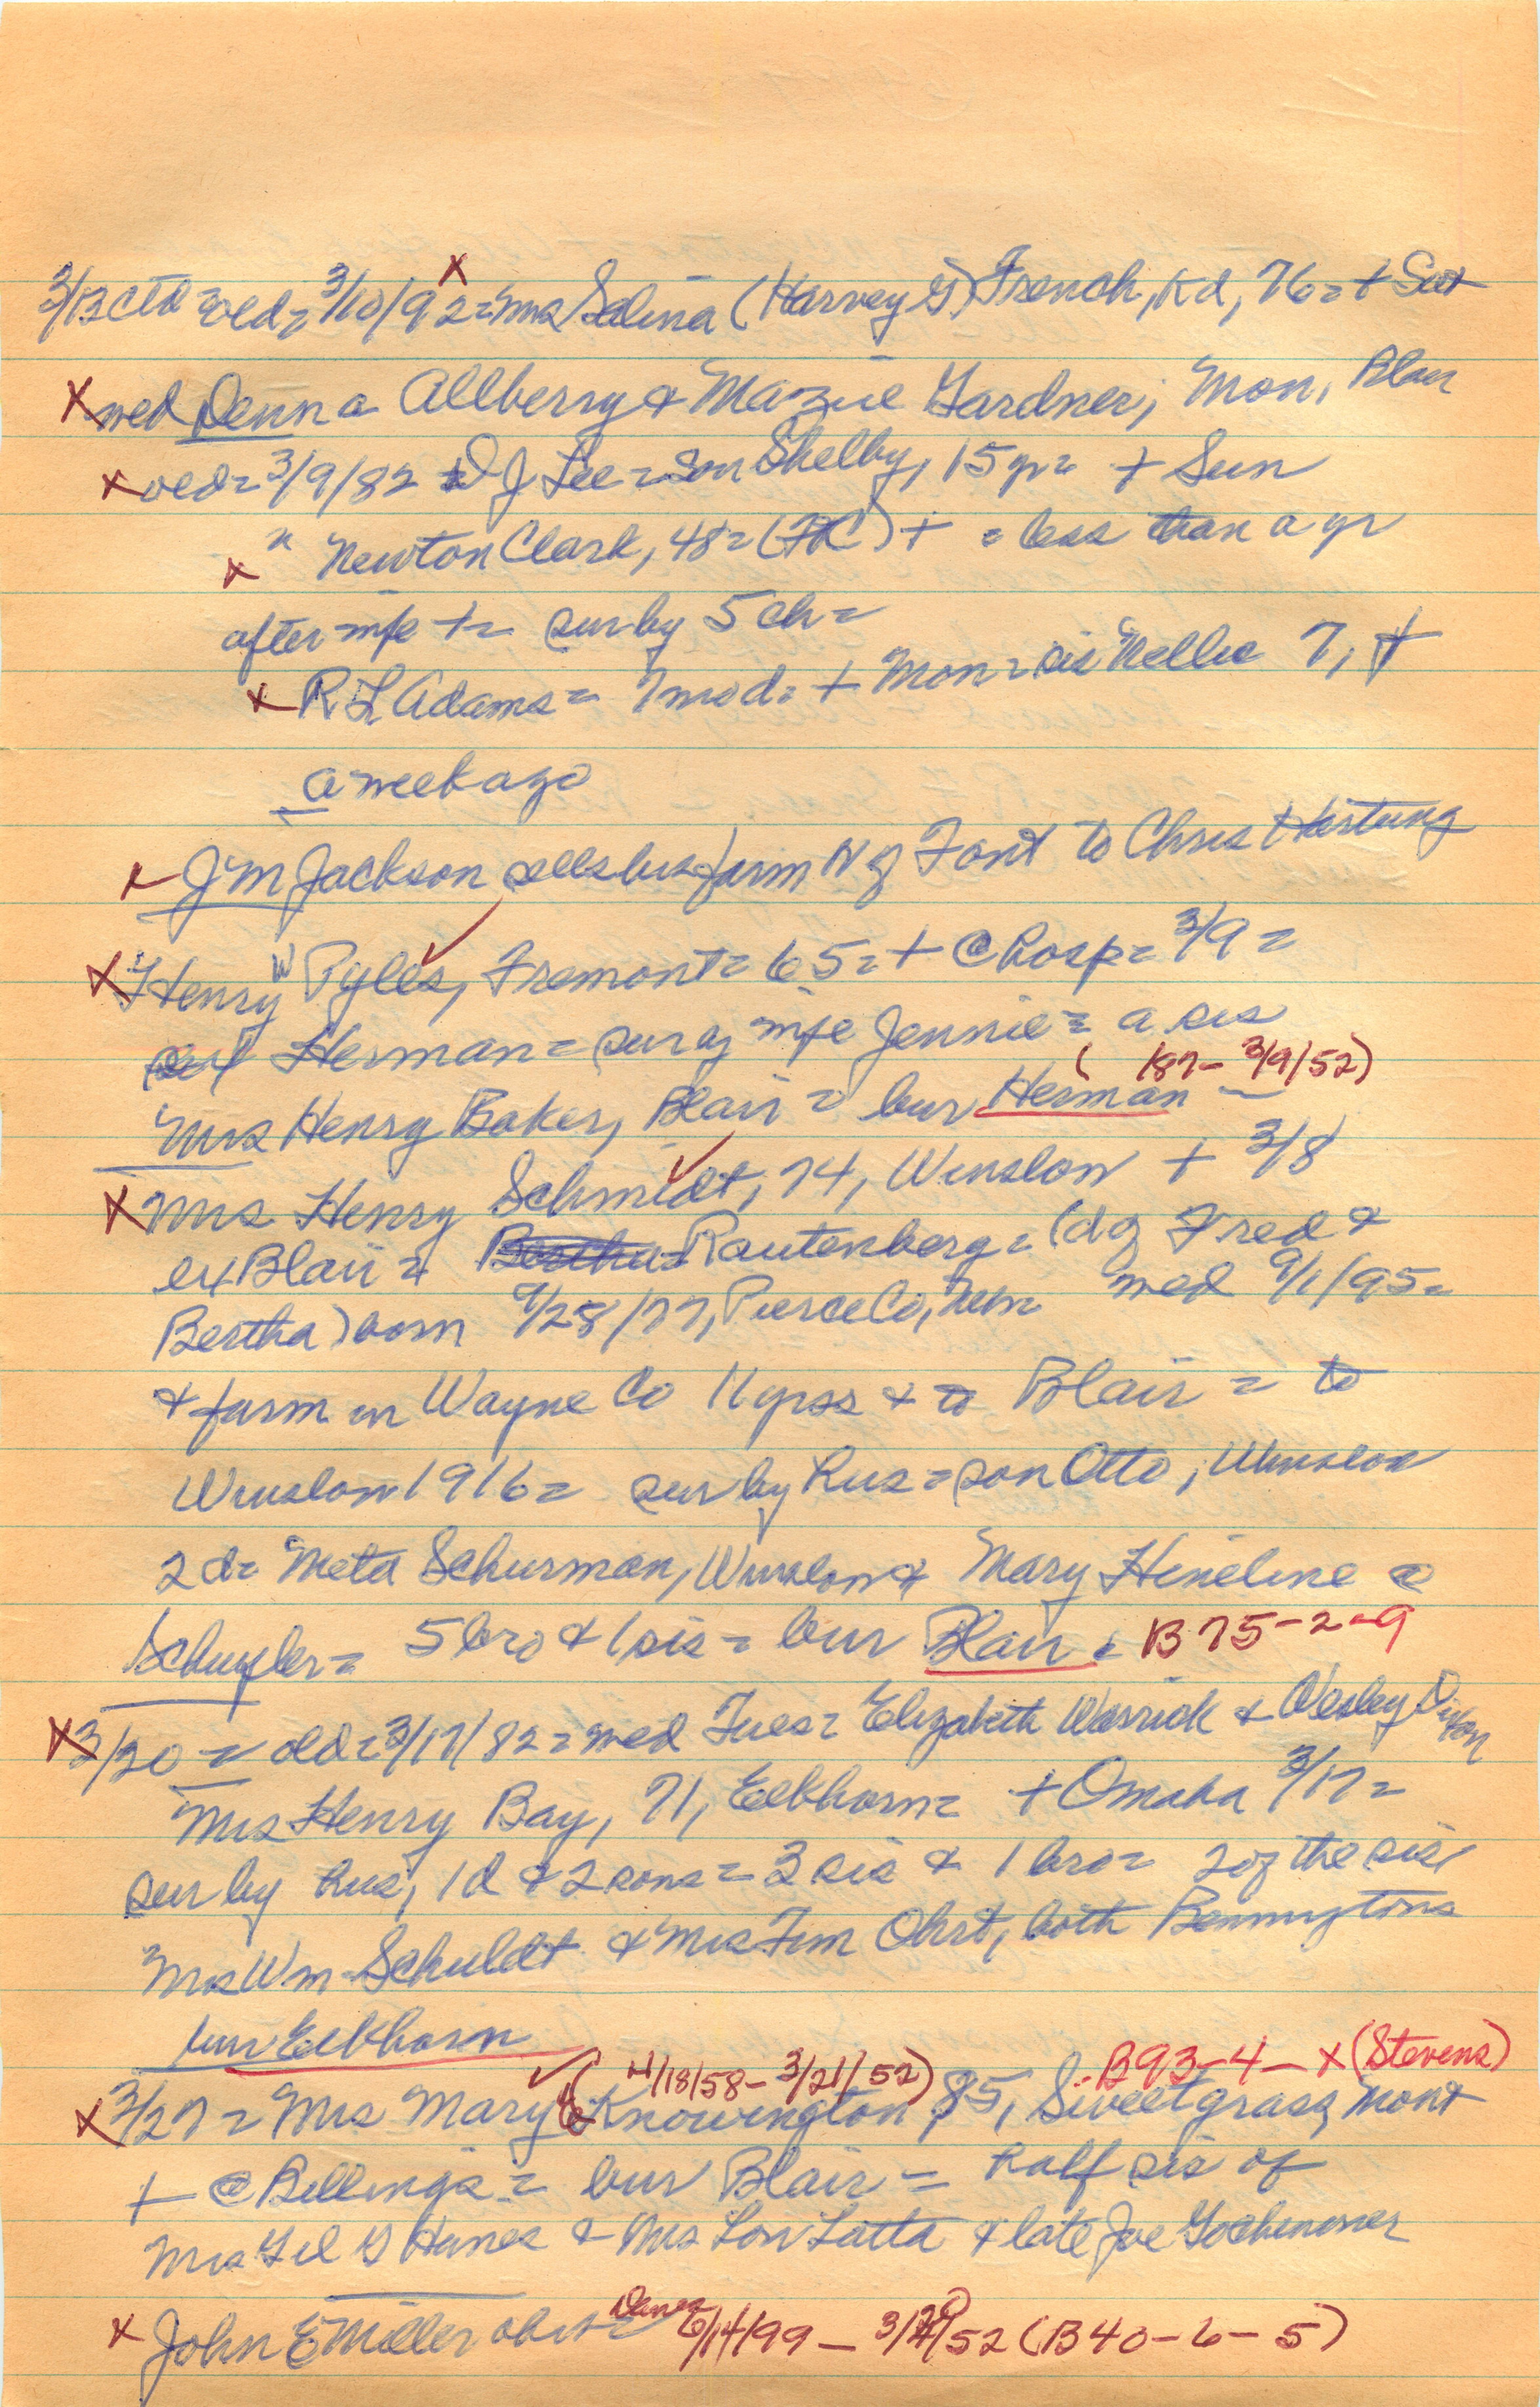 3/13 ctd = old = 3/10/92 = x Mrs Salina (Harvey G) French, Kd, 76 = + Sat
x wed Denna Allberry & Mazie Gardner, Mon, Blair
x old = 3/9/82 = D J Lee = son Shelby, 15 yr = + Sun
x " Newton Clark, 48 = (FtC) + = less than a yr
after wife + = sur by 5 ch =
x R L Adams = 7 mo d = + Mon = sis Nellie 7, +
a week ago
x J M Jackson sells his farm N of Font to Chris Hartung
x Henry W Pyles, Fremont = 65 = + @ hosp = 3/9 =
Herman = sur by wife Jennie = a sis
( 187 - 3/9/52)
Mrs Henry Baker, Blair = bur Herman
x Mrs Henry Schmidt, 74, Winslow + 3/8
ex Blair = Rautenberg = (d of Fred &
Bertha) born 9/28/77, Pierce Co, Neb = wed 9/1/95 =
& farm in Wayne Co 11 yrs & to Blair = to
Winslow 1916 = sur by hus = son Otto, Winslow
2 d = Meta Schurman, Winslow & Mary Hineline @
Schuyler = 5 bro & 1 sis = bur Blair = B75-2-9
x 3/20 = old = 3/17/82 = wed Tues = Elizabeth Warrick & Wesley Dixon
Mrs Henry Bay, 71, Elkhorn = + Omaha 3/17 =
sur by hus, 1 d & 2 sons = 3 sis & 1 bro = 2 of the sis,
Mrs Wm Schuldt & Mrs Tim Ohrt, both Benningtons
bur Elkhorn
(4/18/58 - 3/21/52) B93-4-x (Stevens)
x 3/27 = Mrs Mary Knowington, 85, Sweetgrass, Mont
+ @ Billings = bur Blair = half sis of
Mrs Gil G Hanes & Mrs Lon Latta & late Joe Gochenouer
x John E Miller obit = Dane 6/14/99 - 3/20/52 (B40-6-5)